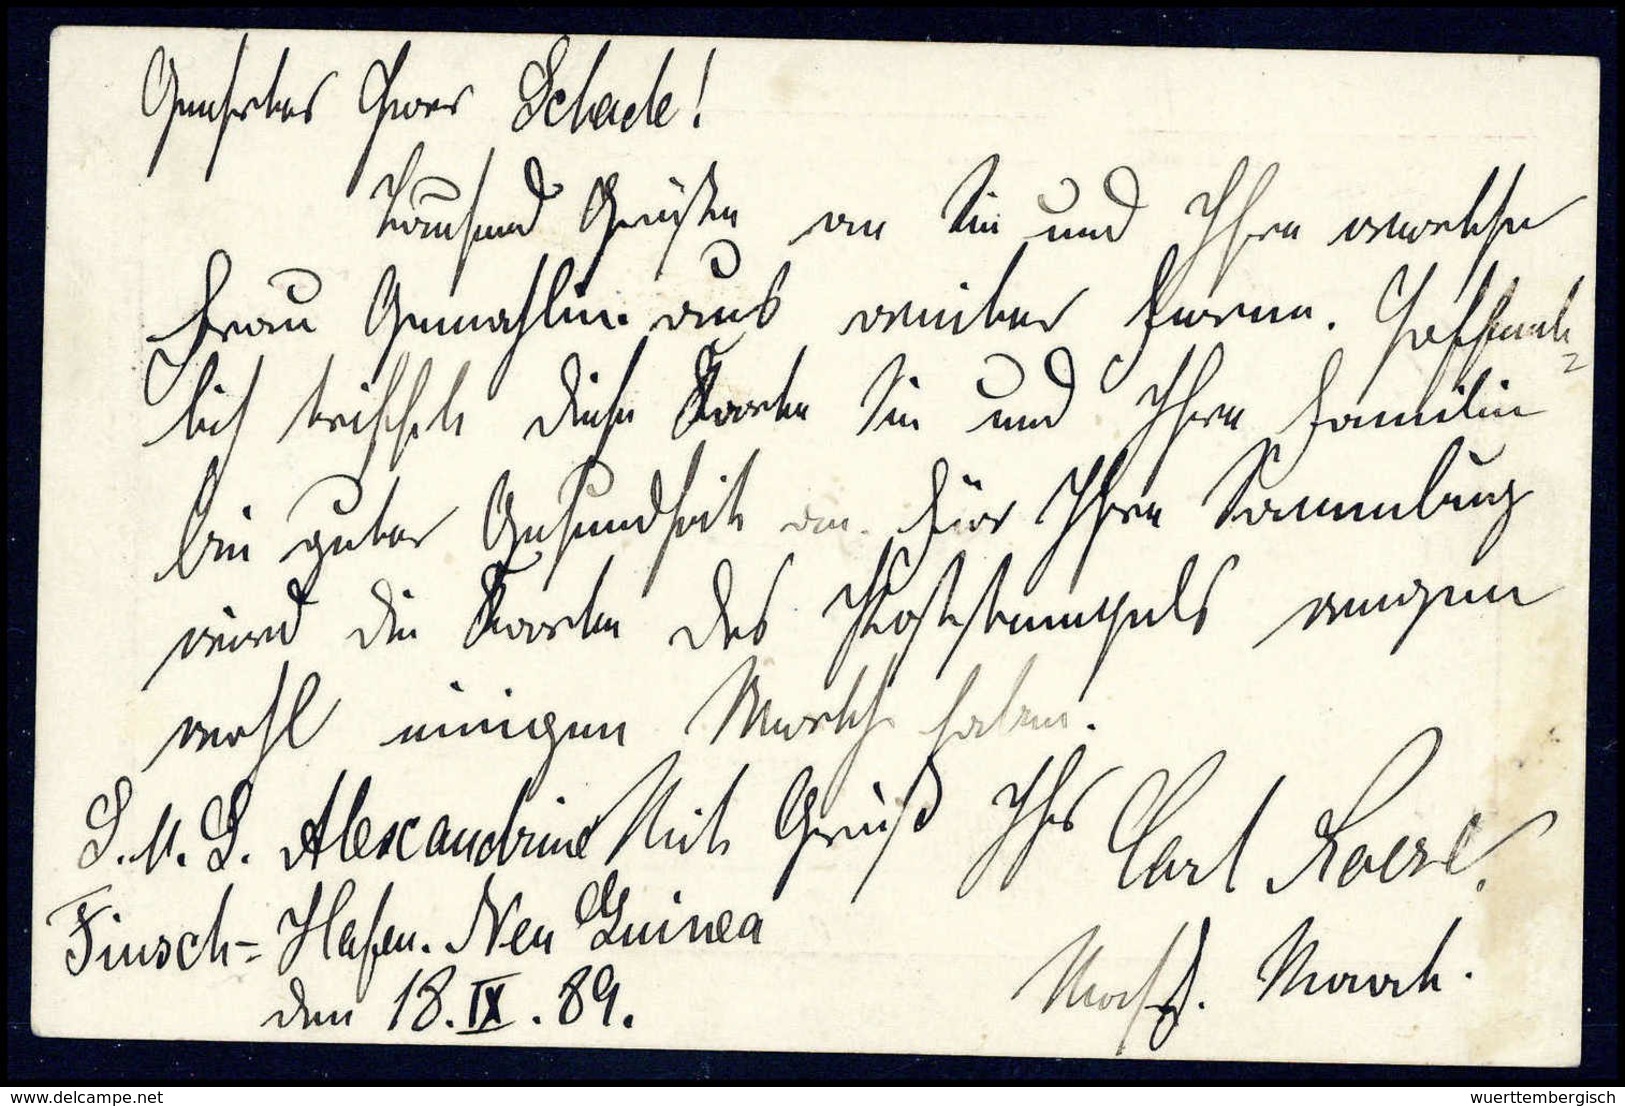 Geehrter Herr Schade!
Tausend Grüße an Sie und Ihre werthe
Frau Gemahlin aus weiter Ferne. Hoffent=
lich trifft diese Karte Sie und Ihre Familie
bei guter Gesundheit an. Für Ihre Sammlung
wird die Karte des Poststempels wegen
wohl einigen Werth haben.
S. M. S. Alexandrine Mit Gruß Ihr Carl
Finsch-Hafen. Neu Guinea
den 18. IX. 89.